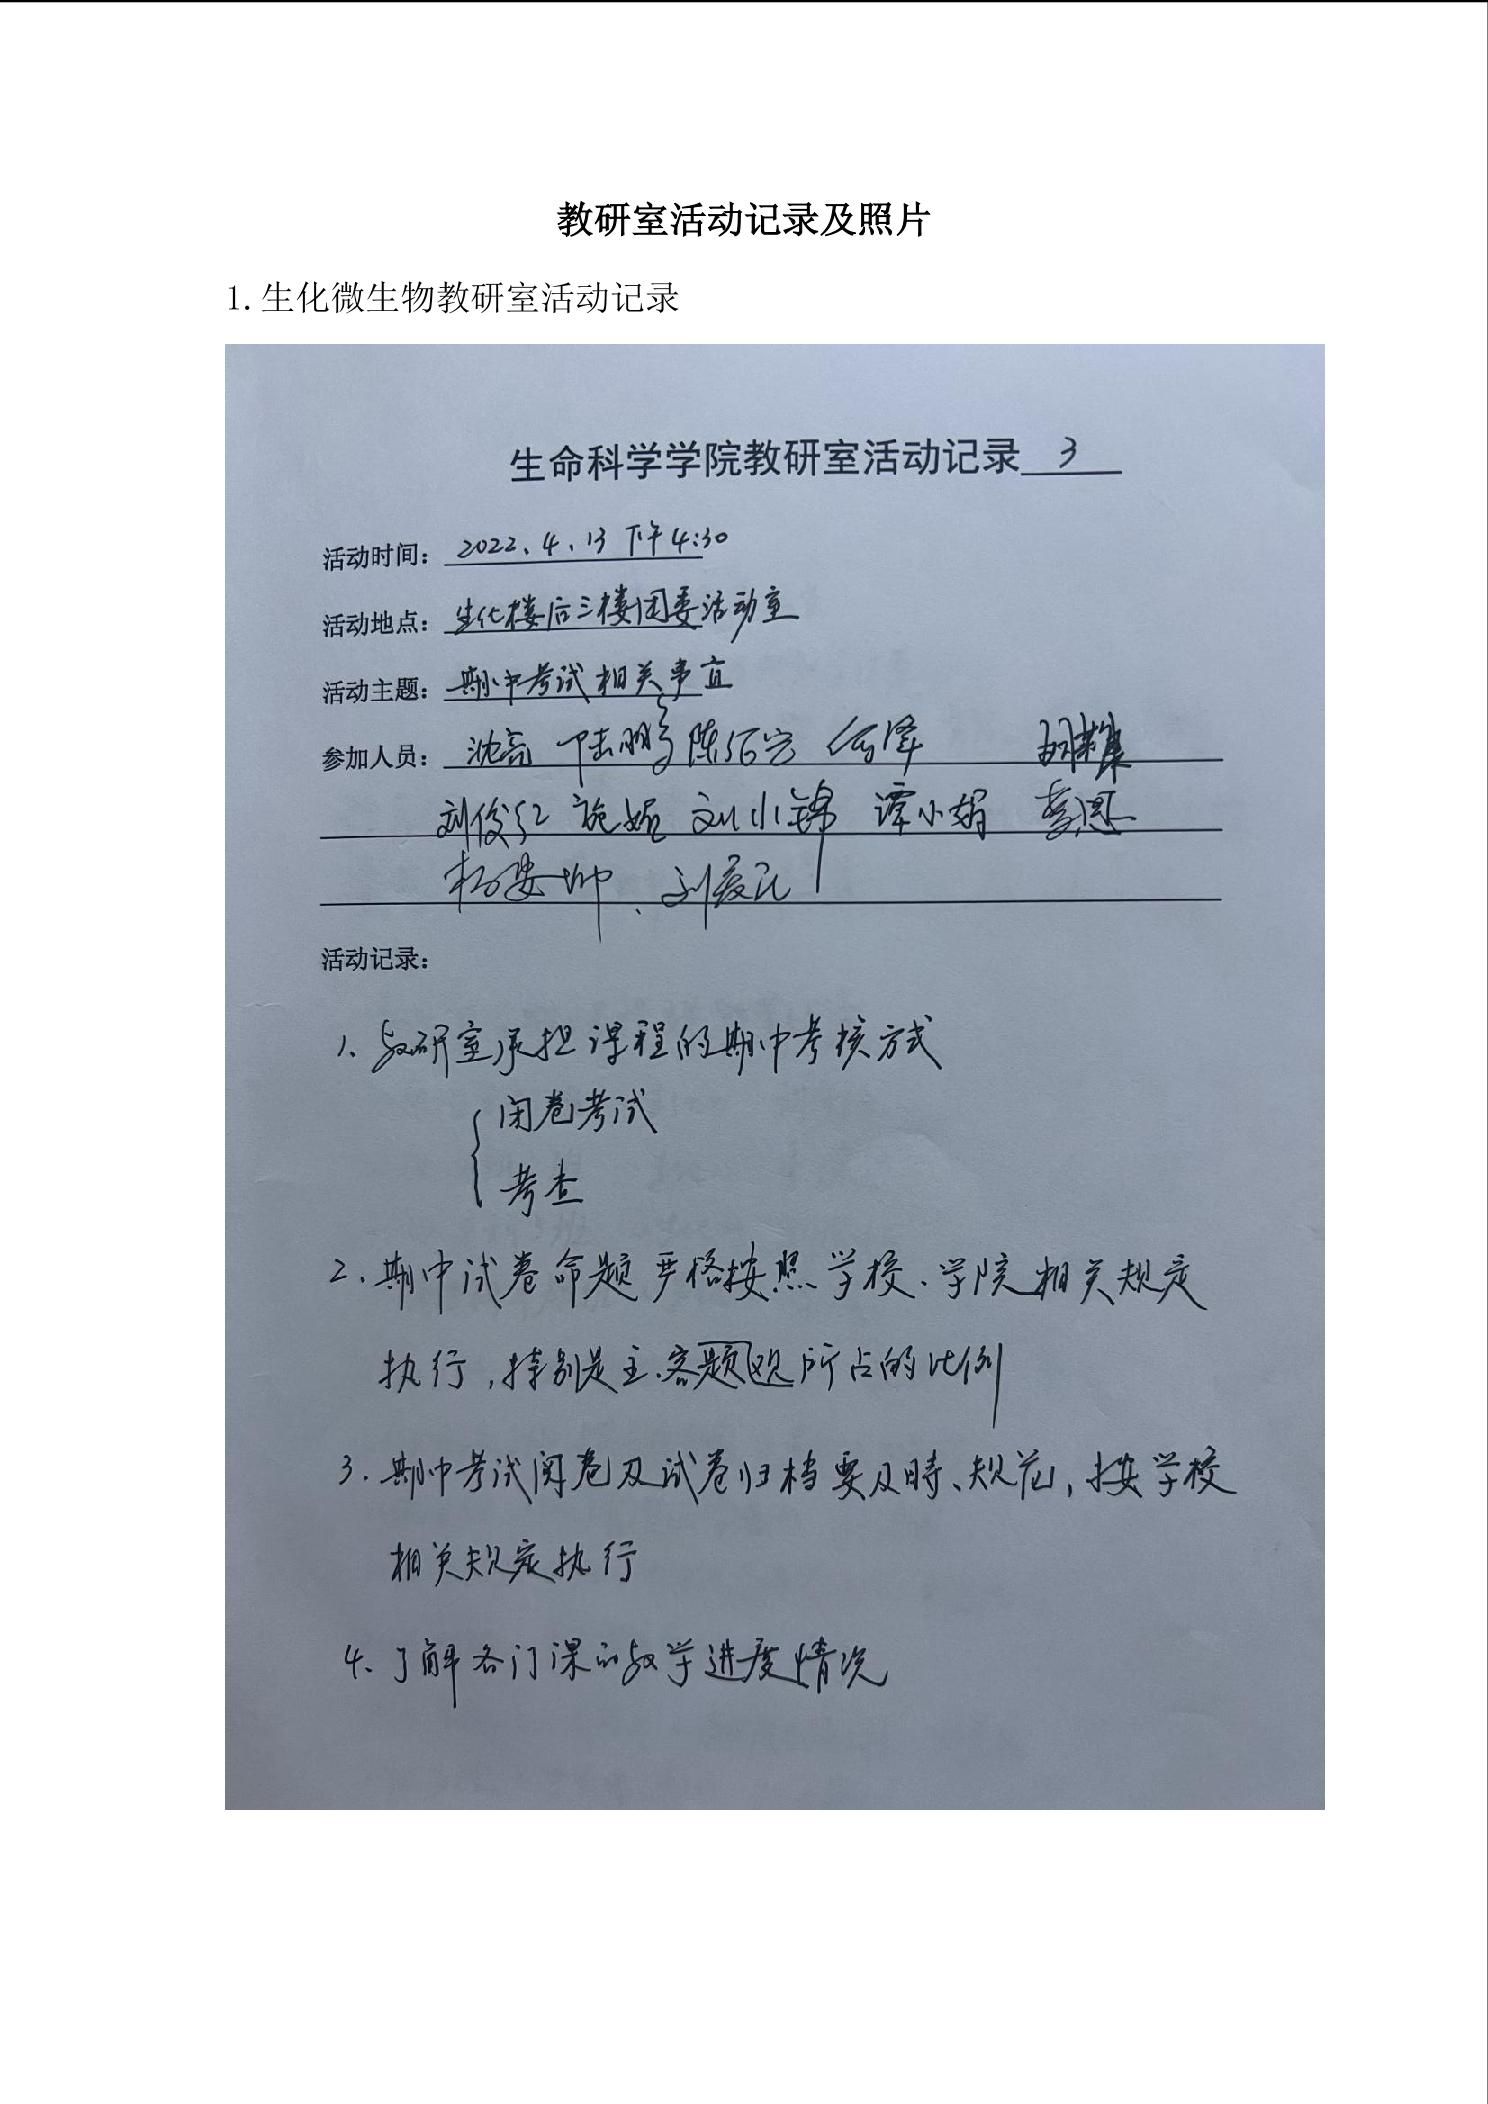 教研室活动记录及照片
1.生化微生物教研室活动记录
生命科学学院教研室活动记录 3
活动时间：2022.4.13 下午4:30
活动地点：生化楼后三楼团委活动室
活动主题：期中考试相关事宜
参加人员：沈亮 陆鹏 陈佰岩
刘俊红 施娅 刘小锦 谭小娟
杨安帅、刘爱民
活动记录：
1、教研室承担课程的期中考核方式
闭卷考试
考查
2、期中试卷命题严格按照学校、学院相关规定
执行，特别是主.客题观所占的比例
3.期中考试阅卷及试卷归档要及时、规范，按学校
相关规定执行
4、了解各门课的教学进度情况